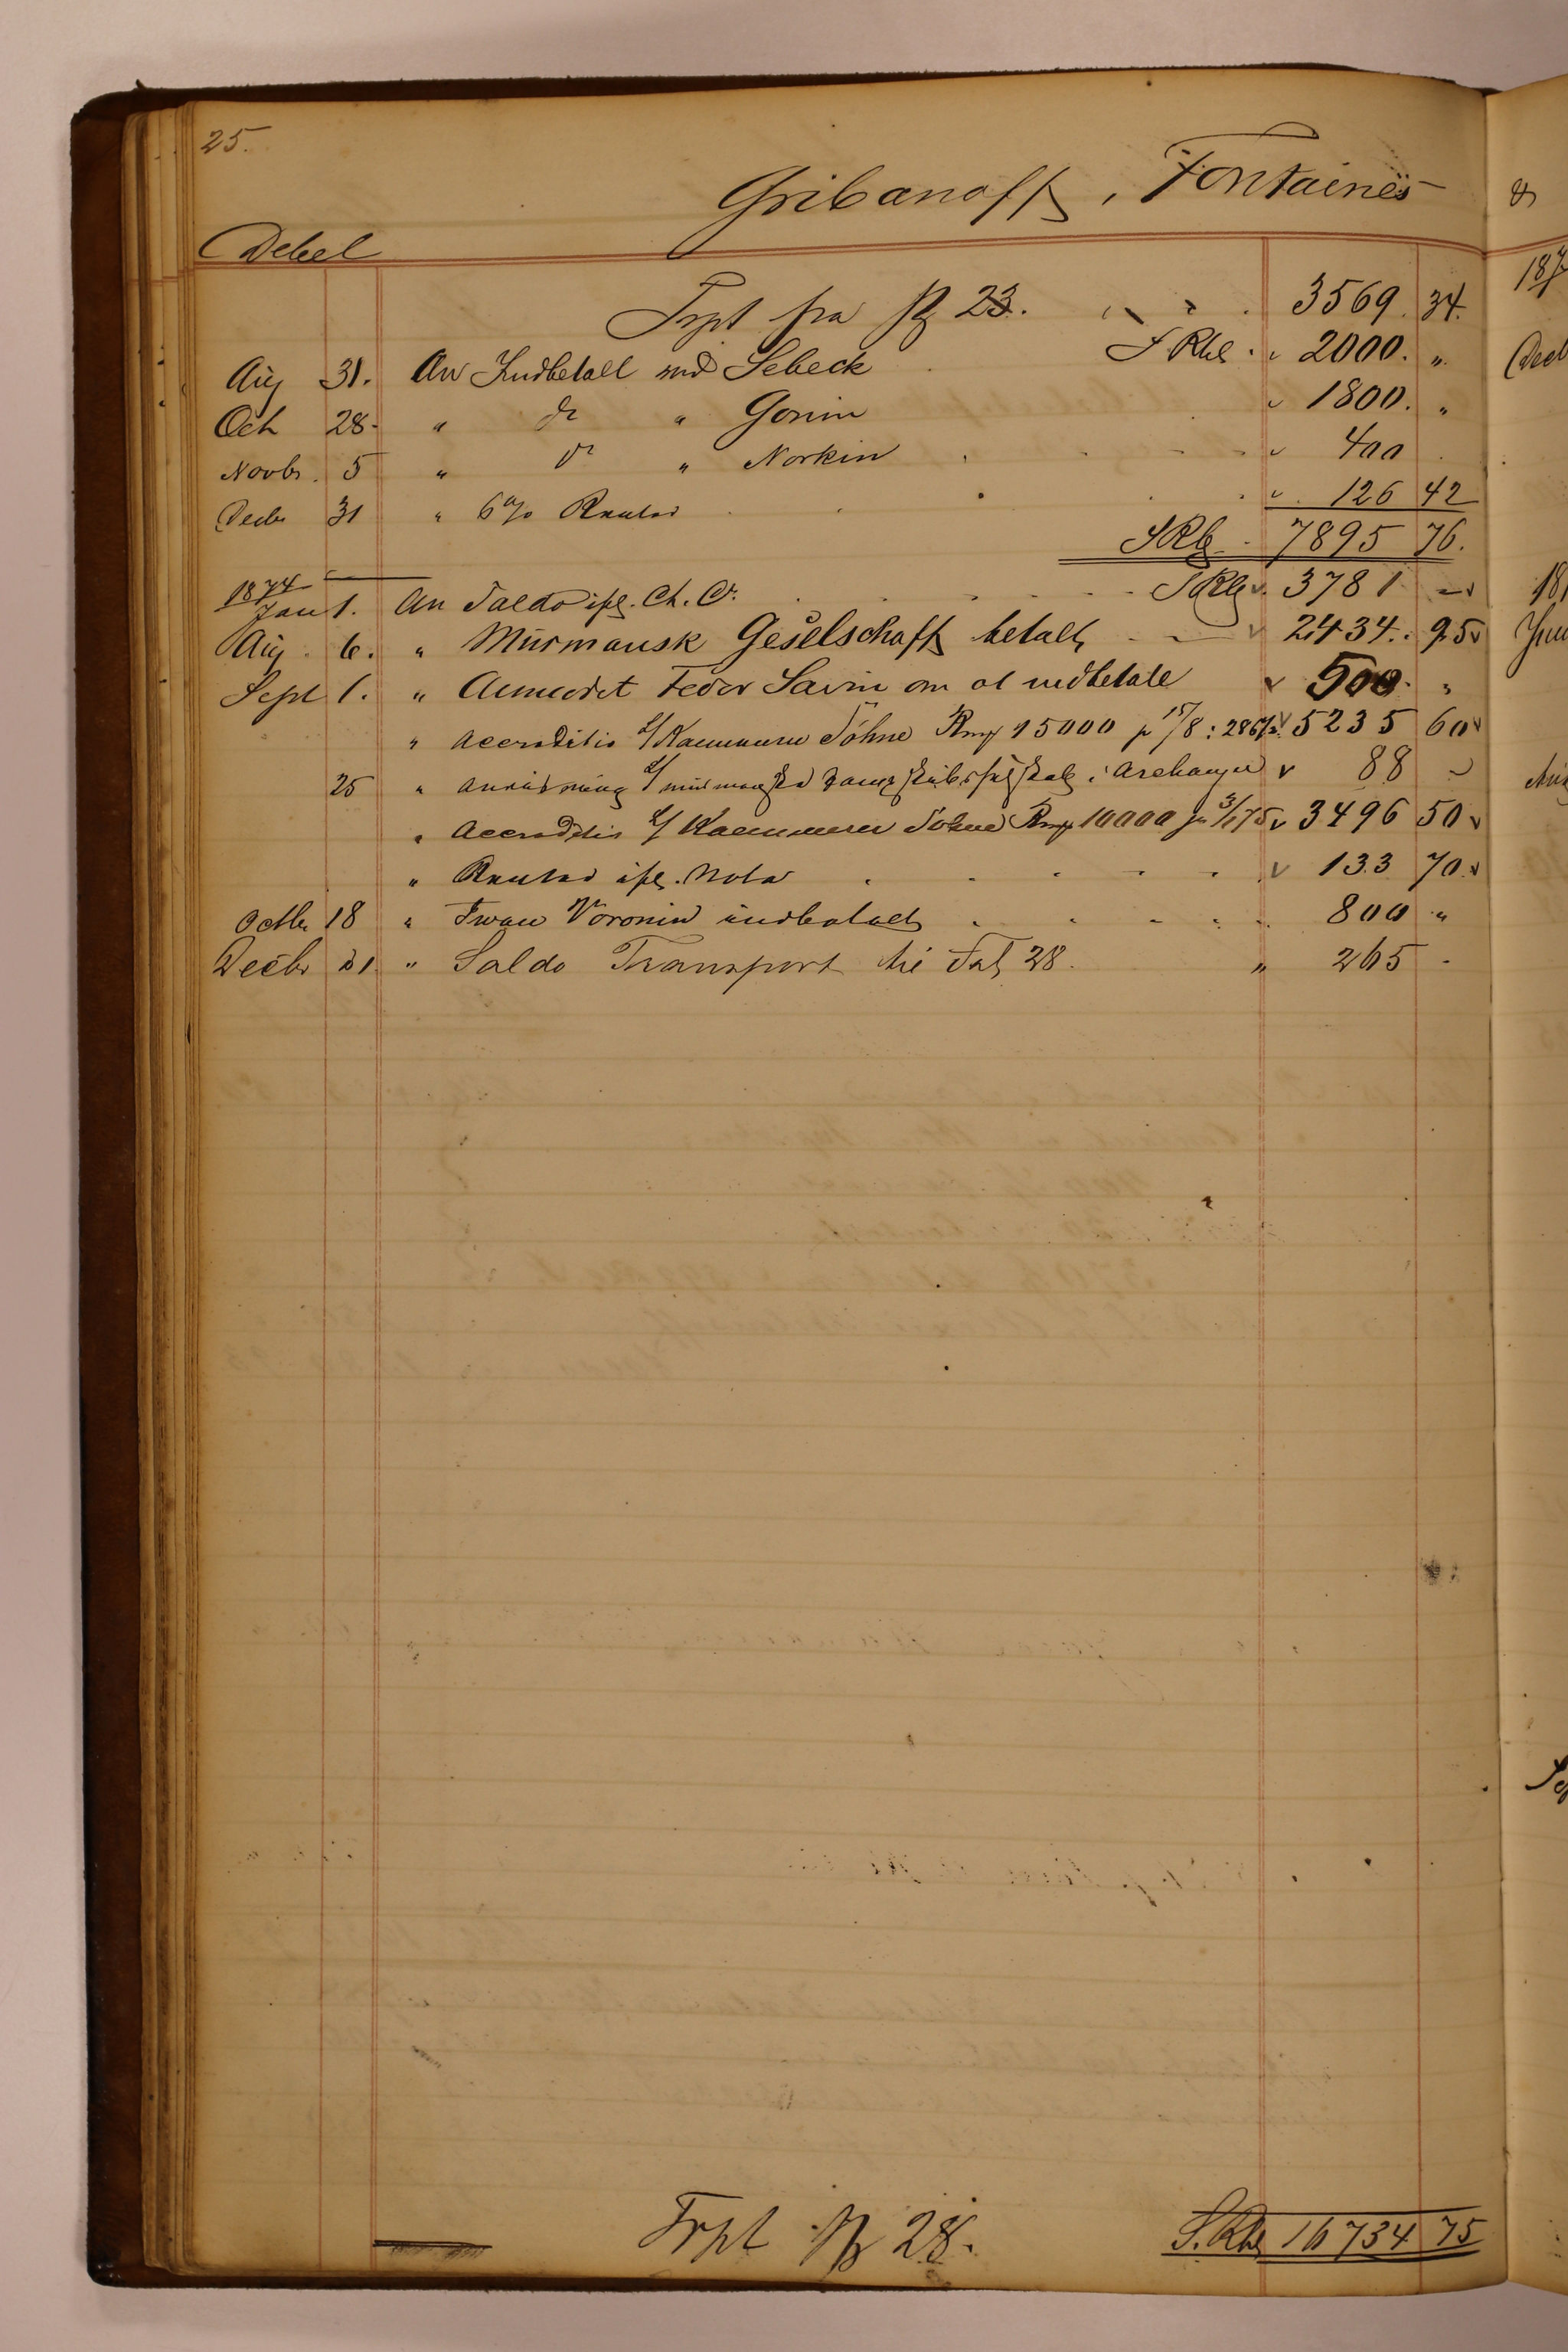 25.
Gribanoff, Fontaines &
Debet
Trpt fra pg 23. 3569. 34.
Aug 31. An Indbetalt ved Sebeck S Rbl. 2000. "
Oct 28. " do " Gorin 1800. "
Novbr. 5 " do " Norkin 400
Decbr 31 " 6% Renter 126 42
S Rb 7895 76.
1874
Jan 1. An Saldo ifl. Ct. Ct. S Rbl 3781 -
Aug. 6. " Murmansk Geselschaft betalt 2434. 95
Sept 1. " Anmodet Fedor Savin om at indbetale 500. "
" Accreditiv Kaemmerer Söhne Rm 15000 p 15/8: 286 5235 60
25 " Anvisning murmanske Dampskibsselskab i Archangel 88 -
" Accreditiv Kaemmerer Söhne Rm 10000 3/1 75 3496 50
" Renter ifl. Nota 133 70
Octbr 18 " Iwan Voronin indbetalt 800 "
Decbr 31 " Saldo Transport til Fol 28. " 265 -
Trpt pg 28. S. Rbl 16734 75